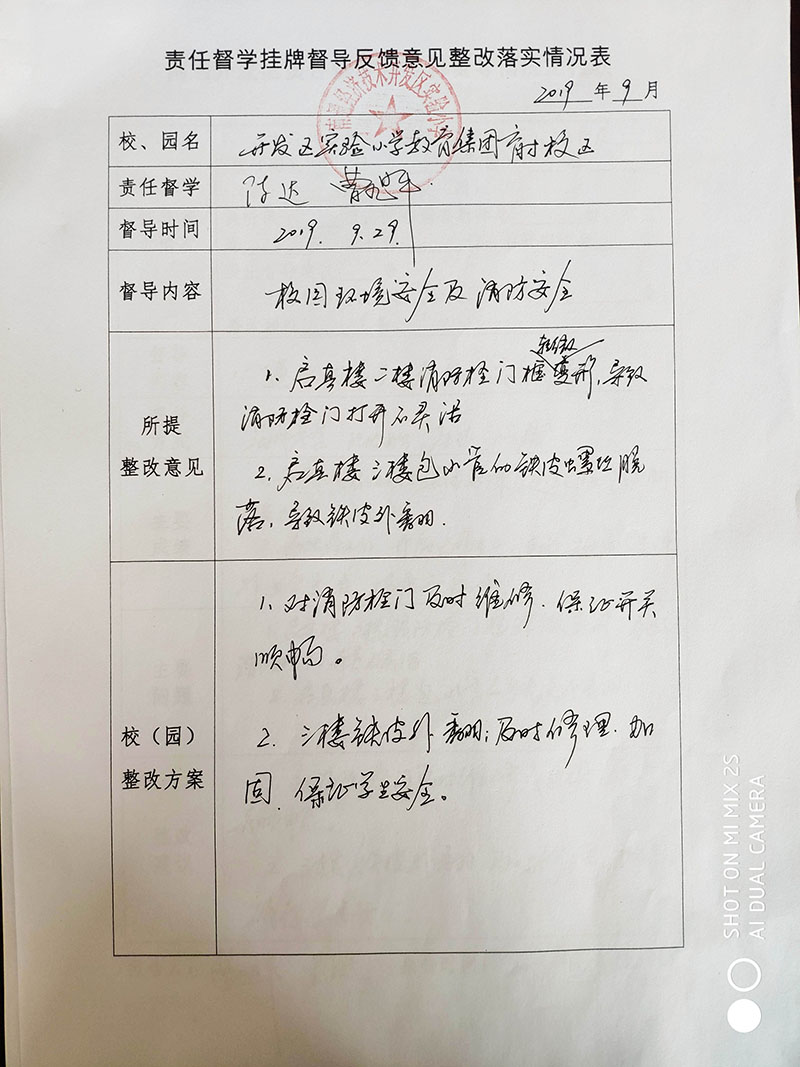 责任督学挂牌督导反馈意见整改落实情况表
2019 年 9 月
校、园名
开发区实验小学教育集团育才校区
责任督学
陈达
督导时间
2019. 9.29.
督导内容
校园环境安全及消防安全
所提
整改意见
轻微
1、启真楼二楼消防栓门框变形,导致
消防栓门打开不灵活
2、启真楼三楼包水管的铁皮螺丝脱
落,导致铁皮外翻.
校（园）
整改方案
1、对消防栓门及时维修.保证开关
顺畅。
2、三楼铁皮外翻;及时修理.加
固.保证学生安全。
SHOT ON MI MIX 2S
AI DUAL CAMERA